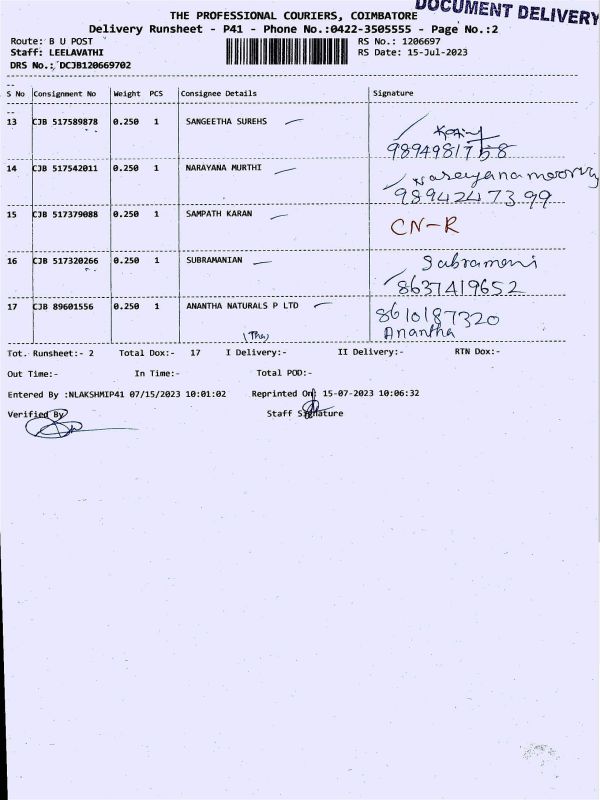 DOCUMENT DELIVERY
THE PROFESSIONAL COURIERS, COIMBATORE
Delivery Runsheet - P41 - Phone No.:0422-3505555 - Page No.:2
Route: B U POST RS No.: 1206697
Staff: LEELAVATHI RS Date: 15-Jul-2023
DRS No.: DCJB120669702
S No Consignment No Weight PCS Consignee Details Signature
13 CJB 517589878 0.250 1 SANGEETHA SUREHS
9894981758
14 CJB 517542011 0.250 1 NARAYANA MURTHI Narayanamoorthy
9894247399
15 CJB 517379088 0.250 1 SAMPATH KARAN CN-R
16 CJB 517320266 0.250 1 SUBRAMANIAN Subramani
8637419652
17 CJB 89601556 0.250 1 ANANTHA NATURALS P LTD 8610187320
(Tha) Anantha
Tot. Runsheet:- 2 Total Dox:- 17 I Delivery:- II Delivery:- RTN Dox:-
Out Time:- In Time:- Total POD:-
Entered By :NLAKSHMIP41 07/15/2023 10:01:02 Reprinted On: 15-07-2023 10:06:32
Verified By Staff Signature